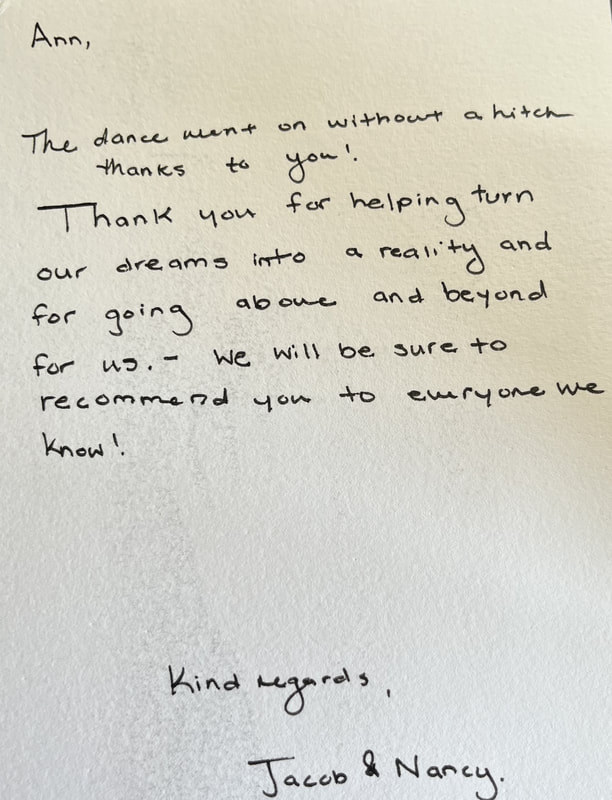 Ann,
The dance went on without a hitch
thanks to you!
Thank you for helping turn
our dreams into a reality and
for going above and beyond
for us. - We will be sure to
recommend you to everyone we
know!
Kind regards,
Jacob & Nancy.